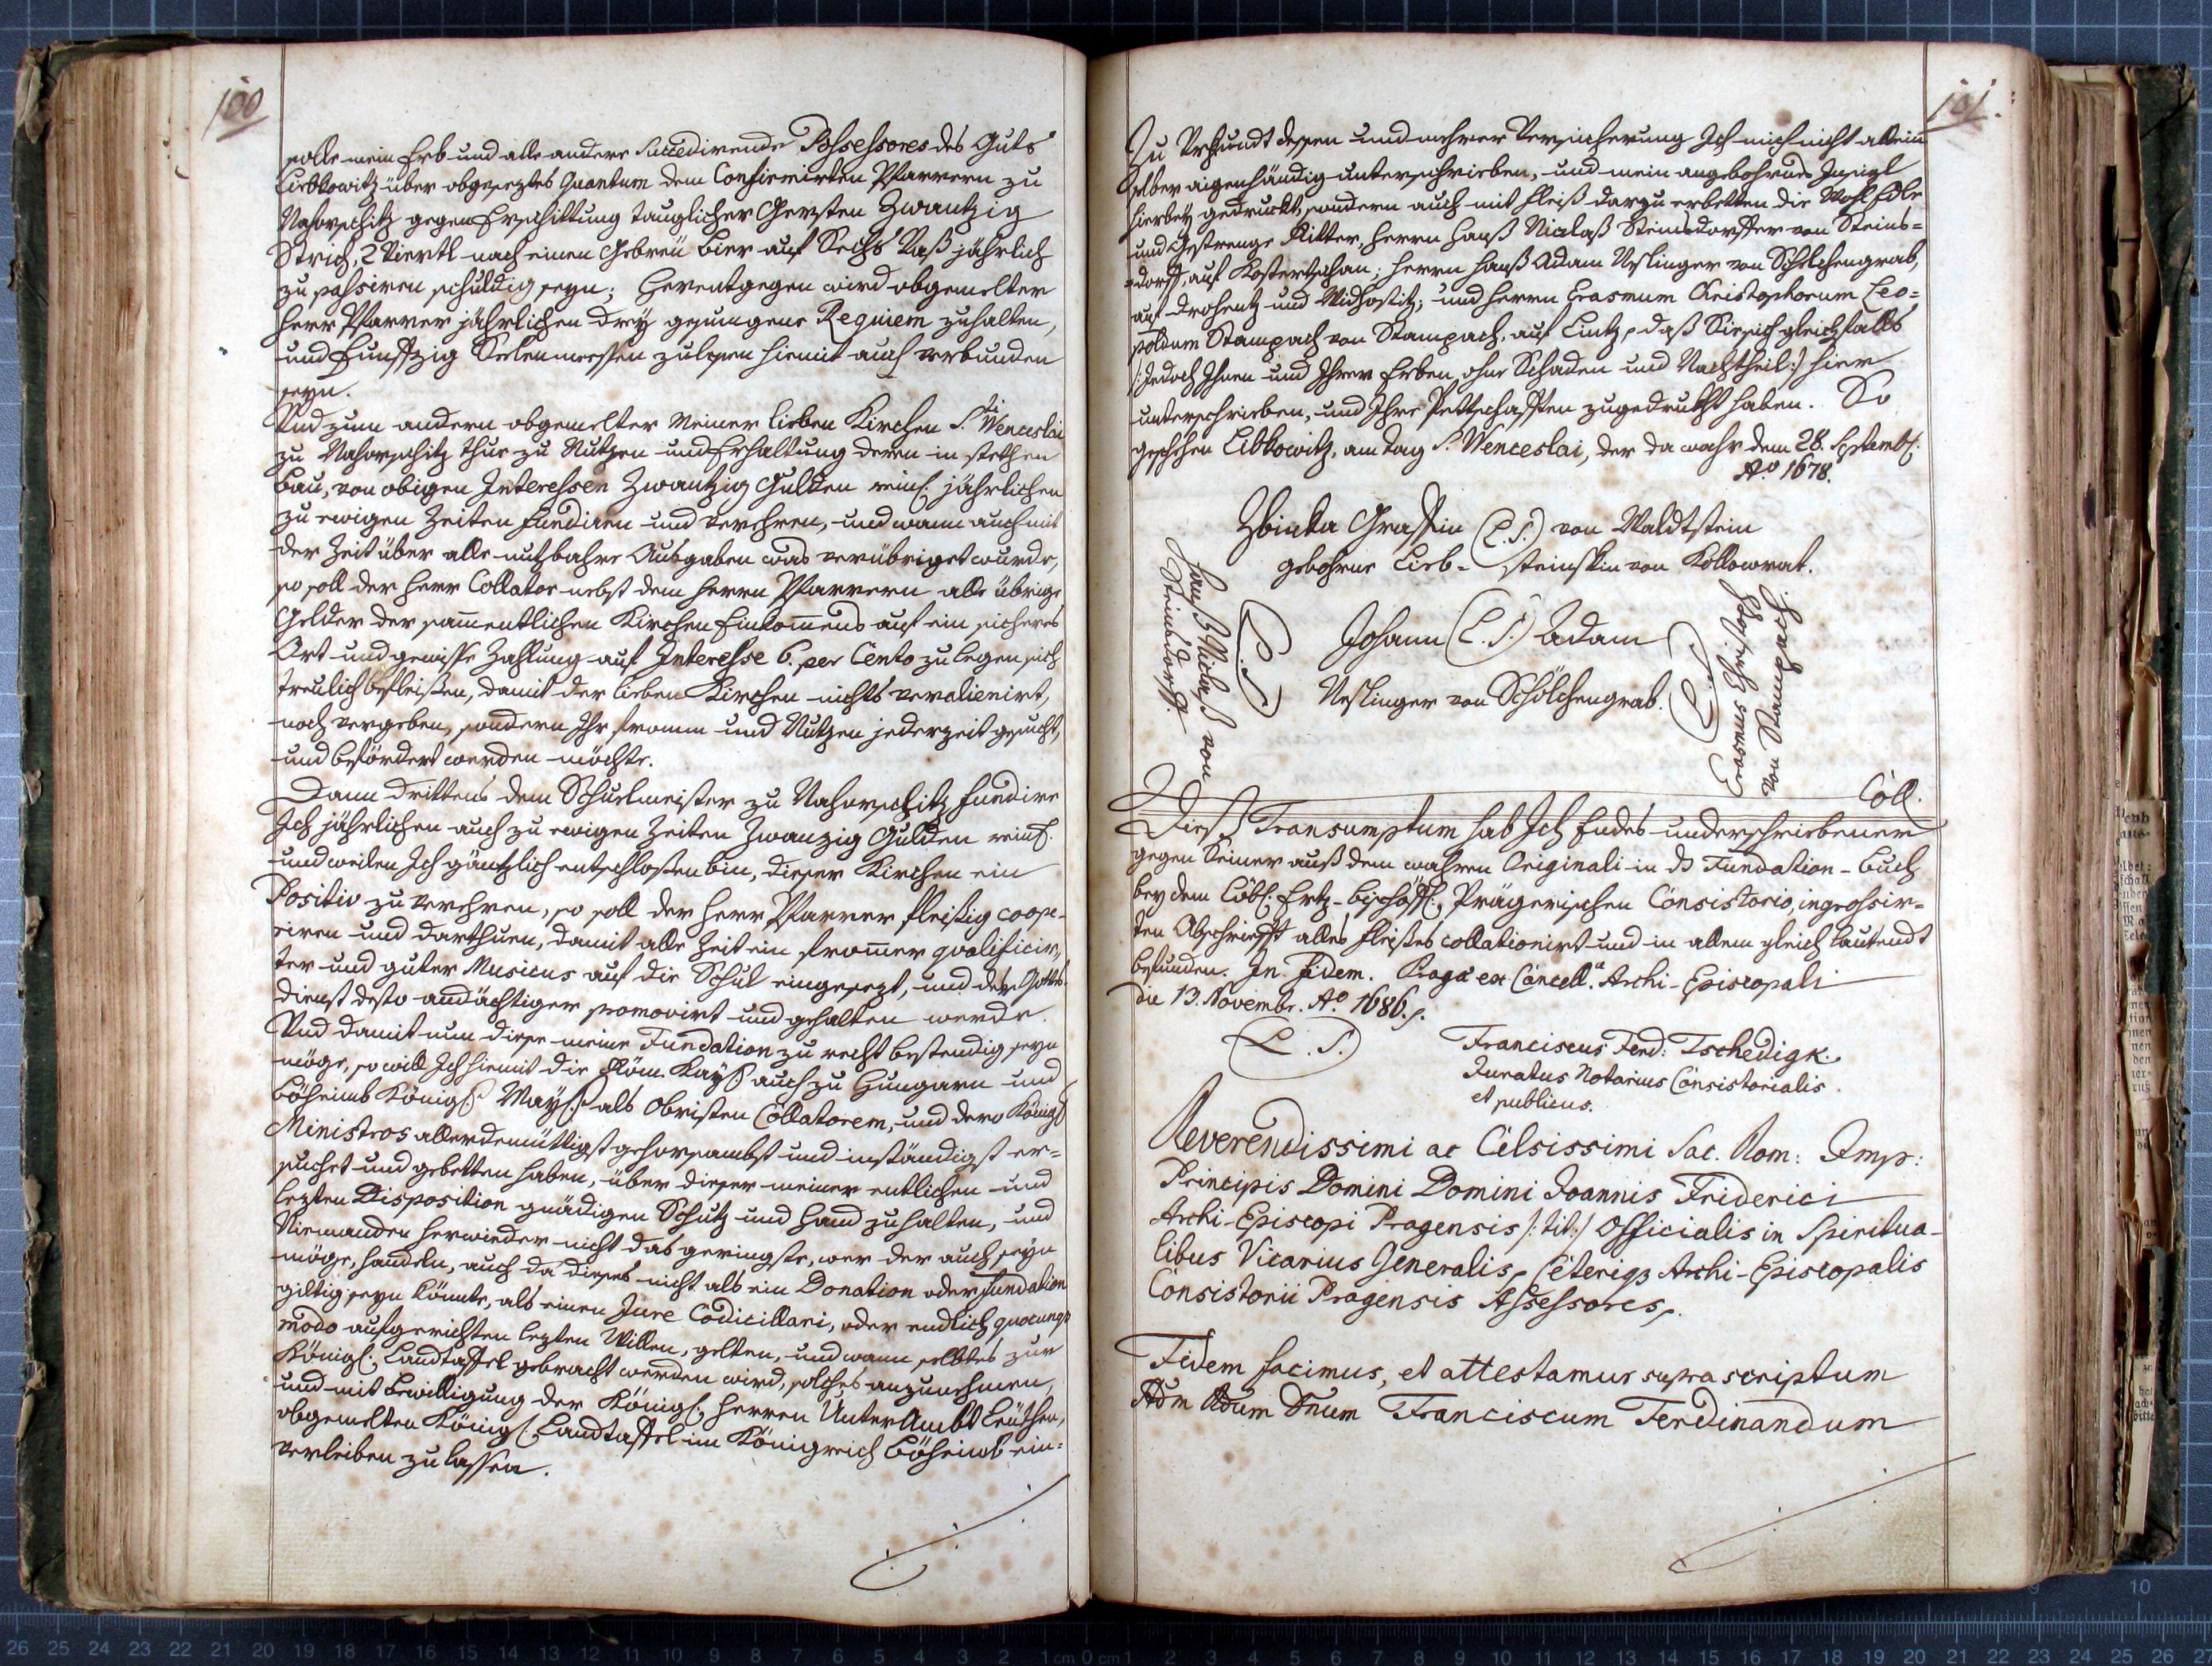 100
solle mein Erb und alle andere succedirende Possessores des Guts
Liebkowitz über obgeseztes Quantum dem Confirmirten Pfarrern zu
Nahorschitz gegen Erschittung tauglicher Gersten Zwantzig
Strich, 2 Viertl nach einen Gebreü Bier auf Sechs Vaß jährlich
zu passiren schuldig seyn; Herentgegen wird obgemelter
Herr Pfarrer jährlichen drey gesungene Requiem zuhalten,
und Funffzig Seelenmessen zulesen hiemit auch verbunden
seyn.
Und zum andern obgemelter Meiner lieben Kirchen S.ti Wenceslai
zu Nahorschitz thue zu Nutzen und Erhaltung deren in stethen
Bau, von obigen Interessen Zwantzig Gulden reinl. jährlichen
zu ewigen Zeiten fundiren und verehren, und wann auch mit
der Zeit über alle nutzbahre Ausgaben was verübriget wurde,
so soll der Herr Collator nebst dem Herrn Pfarrern alle übrige
Gelder der sam̄entlichen Kirchen Einkom̄ens auf ein sicheres
Ort und gewisse Zahlung auf Interesse 6. per Cento zu legen sich
treulich befleißen, damit der lieben Kirchen nichts veralienirt,
noch vergeben, sondern Ihr from̄en und Nutzen jederzeit gesucht,
und befördert werden möchte.
Dann drittens dem Schuelmeister zu Nahorschitz fundire
Ich jährlichen auch zu ewigen Zeiten Zwanzig Gulden reinl.
und weilen Ich gäntzlich entschloßen bin, dieser Kirchen ein
Positiv zu verehren, so soll der Herr Pfarrer fleißig coope-
riren und darthuen, damit alle Zeit ein from̄er qualificir-
ter und guter Musicus auf die Schul eingesezt, und der Gottes-
dienst desto andächtiger promovirt und gehalten werde.
Und damit nun diese meine Fundation zu recht bestendig seyn
möge, so will Ich hiemit die Röm. Kays. auch zu Hungarn und
Böheimb Königl. May. als Obristen Collatorem, und dero Königl.
Ministros allerdemüttigst gehorsambst und inständigst er-
suchet und gebetten haben, über dieser meiner entlichen und
lezten Disposition gnädigen Schutz und Hand zuhalten, und
Niemanden herwieder nicht das geringste, wer der auch seyn
möge, handeln, auch da dieses nicht als ein Donation oder Fundation
giltig seyn könnte, als einen Jure Codicillari, oder endlich quocunq
modo aufgerichten lezten Willen, gelten, und wann selbtes zur
Königl. Landtaffel gebracht werden wird, solches anzunehmen,
und mit Bewilligung der Königl. Herren Unter Ambt Leüthen,
obgemelten Königl. Landtaffel im Königreich Böheimb ein-
verleiben zu lassen.
101.
Zu Uhrkundt dessen und mehrer Versicherung Ich mich nicht allein
selber aigenhändig unterschrieben, und mein angebohrnes Insigl
hierbey gedruckt, sondern auch mit fleiß darzu erbetten die WohlEdle
und Gestrenge Ritter, Herrn Hanß Niclaß Steinsdorffer von Steins-
dorff, auf Kostertschan; Herrn Hanß Adam Veslinger von Schelchengrab,
auf Drohentz und Widhostitz; und Herrn Erasmum Christophorum Leo-
poldum Stampach von Stampach, auf Lintz, daß Sie sich gleichfalls
/:Jedoch Ihnen und Ihren Erben, ohne Schaden und Nachtheil:/ hier
unterschrieben, und Ihre Pettschafften zugedrukht haben. So
geschehen Libkowitz, am tag S. Wenceslai, der da wahr dem 28. Septemb.
Aõ 1678.
Zbinka Graffin (L.S.) von Waldtstein
gebohrne Lieb- steinskin von Kollowrat.
Hanß Niclaß von
Steinsdorff.
(L.S.)
Johann (L.S.) Adam
Veslinger von Schölchengrab.
(L.S.)
Erasmus Christoph
von Stampach.
Coll.
Dieses Transumptum hab Ich Endes underschriebener
gegen Seiner auß dem wahren Originali in ds Fundation-Buch
bey dem Löbl. Ertz-Bischöffl. Prägerischen Consistorio, ingrossir-
ten Abschriefft alles fleißes collationirt und in allem gleich lautendt
befunden. In Fidem. Pragæ ex Cancell.ā Archi-Episcopali
die 13. Novembr. Aõ 1686.
(L.S.)
Franciscus Ferd: Tschedigk.
Juratus Notarius Consistorialis
et publicus.
Reverendissimi ac Celsissimi Sac. Rom: Imp:
Principis Domini Domini Joannis Friderici
Archi-Episcopi Pragensis /:tit:/ Officialis in Spiritua-
libus Vicarius Generalis, Céteriq3 Archi-Episcopalis
Consistorii Pragensis Assessores.
Fidem facimus, et attestamur suprascriptum
Adm Rdum Dnum Franciscum Ferdinandum